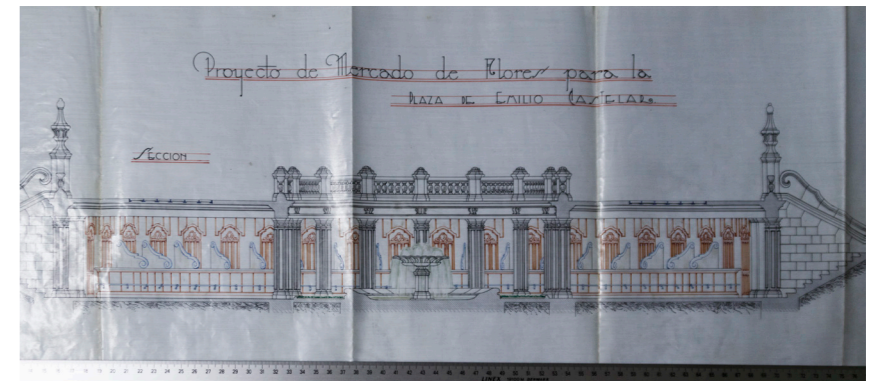 Proyecto de Mercado de Flores para la
PLAZA DE EMILIO CASTELAR.
SECCION